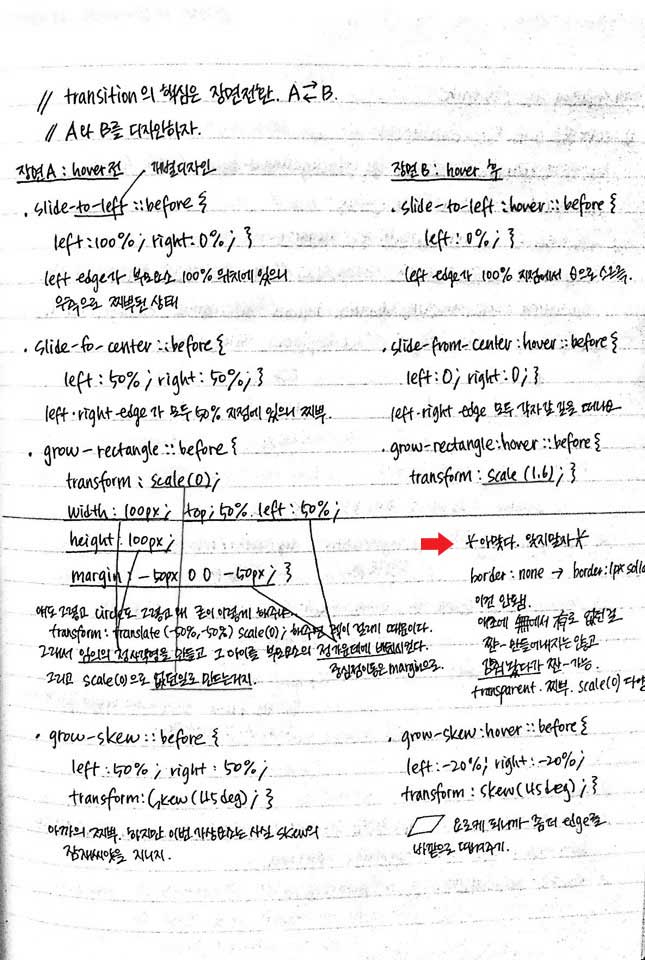 // transition의 핵심은 장면전환. A⇄B.
// A와 B를 디자인하자.
장면A : hover전
개별디자인
. slide-to-left ::before {
left:100%; right:0%; }
left edge가 부모요소 100% 위치에 있으니
우측으로 찌부된 상태
. slide-to-center::before{
left : 50% ; right : 50%; }
left·right edge가 모두 50% 지점에 있으니 찌부.
. grow-rectangle ::before {
transform : scale(0);
width : 100px; top; 50% left : 50%;
height : 100px;
margin : -50px 0 0 -50px; }
얘도 그렇고 circle도 그렇고 왜 굳이 이렇게 해주냐..
transform: translate (-50%, -50%) scale(0); 해주면 렉이 걸리기 때문이다.
그래서 임의의 정사각형을 만들고 그 아이를 부모요소의 정가운데에 배치시킨다.
중심점이동은 margin으로.
그리고 scale(0)으로 없던일로 만드는거지.
. grow-skew ::before {
left : 50% ; right : 50%;
transform: (skew (45deg) ; }
아까의 찌부. 하지만 이번 가상요소는 사실 skew의
잠재씨앗을 지니지.
장면 B : hover 후
. slide-to-left :hover ::before {
left : 0% ; }
left edge가 100% 지점에서 0으로 스르륵.
. slide-from-center:hover ::before {
left:0; right:0; }
left·right edge 모두 각자 갈 길을 떠나요
. grow-rectangle:hover ::before {
transform : scale (1.6); }
*아맞다. 잊지말자*
border : none → border:1px solid
이건 안돼.
애초에 無에서 有로 없던걸
짠- 만들어내지는 않고
감춰놨다가 짠- 가능.
transparent. 찌부. scale(0) 다양
. grow-skew:hover ::before {
left:-20%; right:-20%;
transform: skew(45deg) ; }
요로케 되니까 좀더 edge를
바깥으로 땡겨주기.